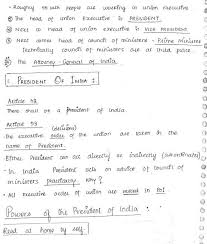 Roughly 55 lakh people are working in union executive
The head of union executive is PRESIDENT.
Next to head of union executive is VICE PRESIDENT
Next comes head of council of ministers - Prime Minister
Technically council of ministers are at third place
The Attorney General of India
: PRESIDENT OF INDIA :
Article 52
There shall be a president of India.
Article 53
(decisions)
The executive order of the union are taken in the
name of President.
Either President can act directly or indirectly (subordinates)
In India President acts on advice of council of
ministers practically. Why?
All executive order of union are passed in
Powers of the President of India :
Read at home by self